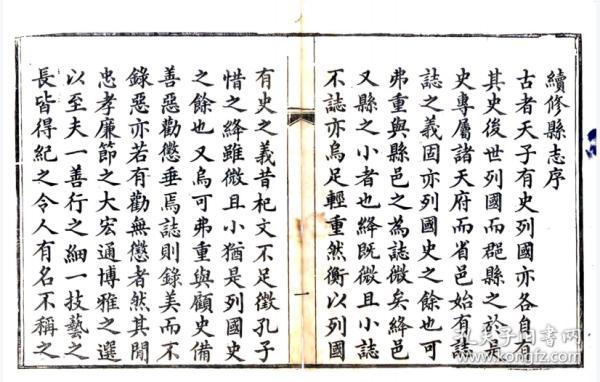 續修縣志序
古者天子有史列國亦各自有
其史後世列國而郡縣之於是
史專屬諸天府而省邑始有誌
誌之義固亦列國史之餘也可
弗重與縣邑之為誌微矣絳邑
又縣之小者也絳既微且小誌
不誌亦烏足輕重然衡以列國
一
有史之義昔杞文不足徵孔子
惜之絳雖微且小猶是列國史
之餘也又烏可弗重與顧史備
善惡勸懲垂焉誌則錄美而不
錄惡亦若有勸無懲者然其間
忠孝廉節之大宏通博雅之選
以至夫一善行之細一技藝之
長皆得紀之令人有名不稱之
孔夫子旧书网
www.kongfz.com